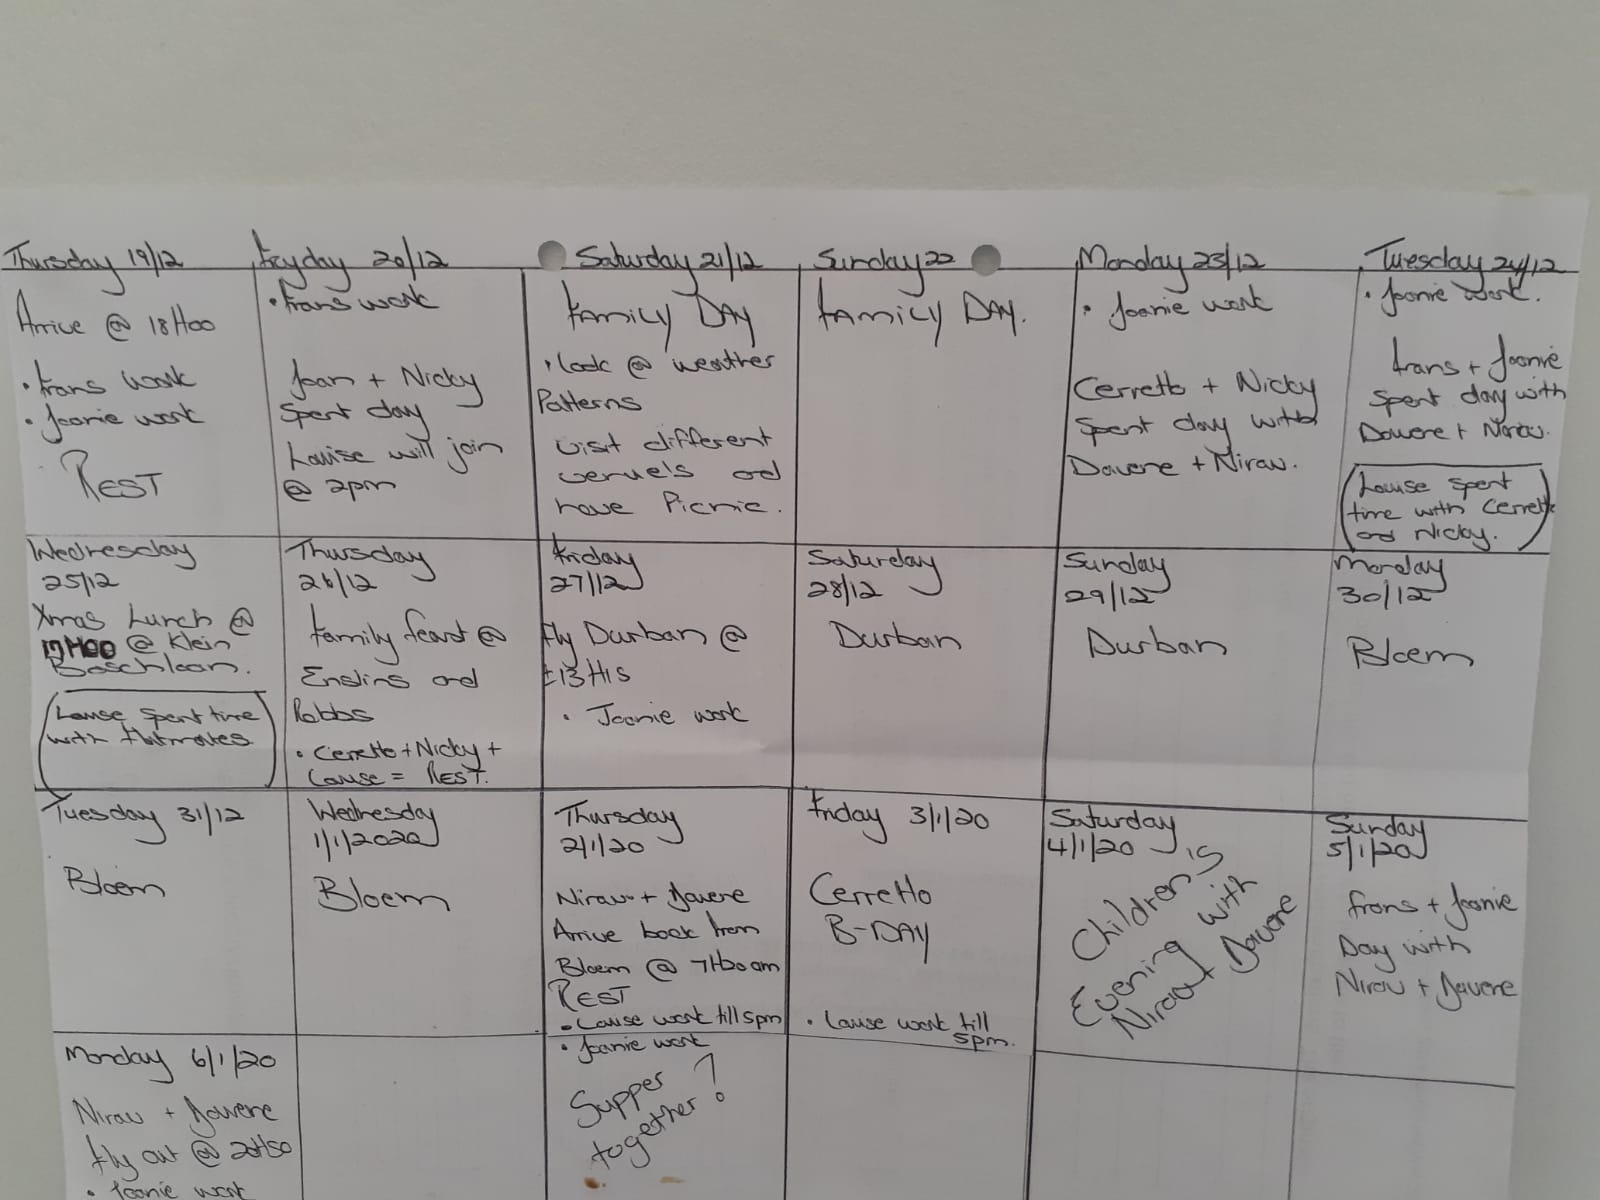 Thursday 19/12
Arrive @ 18H00
• Frans work
• Joanie work
REST
Fryday 20/12
• Frans work
Joan + Nicky
Spent day
Louise will join
@ 2pm
Saturday 21/12
FAMILY DAY
• Look @ weather
Patterns
Visit different
venuels and
have Picnic.
Sunday 22
FAMILY DAY.
Monday 23/12
• Joanie work
Cerretto + Nicky
Spent day with
Davere + Nirav.
Tuesday 24/12
• Joanie work.
Frans + Joanie
Spent day with
Davere + Nirav.
Louise spent
time with Cerretto
and Nicky.
Wednesday
25/12
Xmas Lunch @
@ Klein
Boschloan.
Louise spent time
with flatmates
Thursday
26/12
Family feast @
Enslins and
Robbs
• Cerretto + Nicky +
Louise = REST.
Friday
27/12
Fly Durban @
±13H15
• Joanie work
Saturday
28/12
Durban
Sunday
29/12
Durban
Monday
30/12
Bloem
Tuesday 31/12
Bloem
Wednesday
1/1/2020
Bloem
Thursday
2/1/20
Nirav + Davere
Arrive back from
Bloem @ 7H30am
REST
• Louise work till 5pm
• Joanie work
Supper
together?
Friday 3/1/20
Cerretto
B-DAY
• Louise work till
5pm.
Saturday
4/1/20
Children's
Evening with
Nirav + Davere
Sunday
5/1/20
Frans + Joanie
Day with
Nirav + Davere
Monday 6/1/20
Nirav + Davere
Fly out @ 20H50
• Joanie work